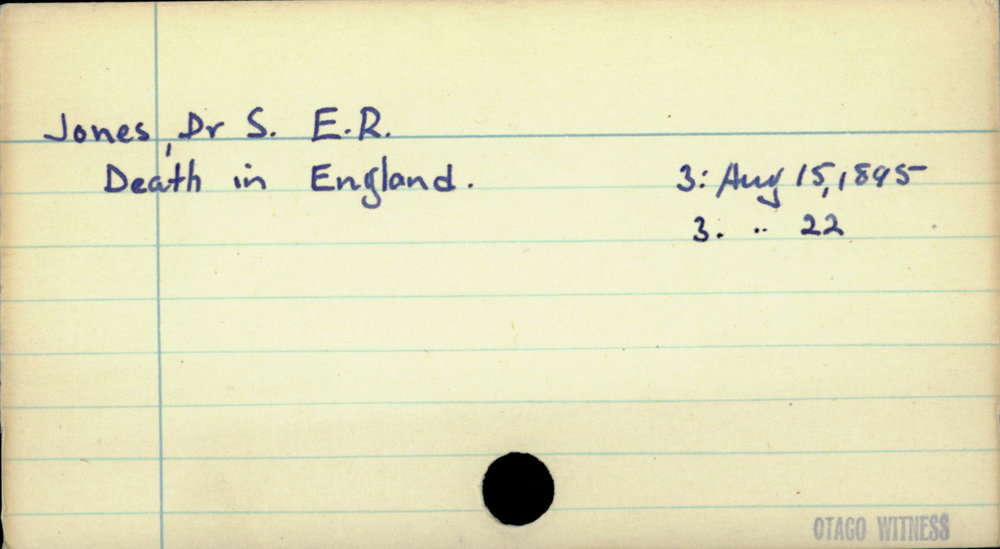 Jones, Dr S. E.R.
Death in England. 3: Aug 15, 1895
3. " 22
OTAGO WITNESS